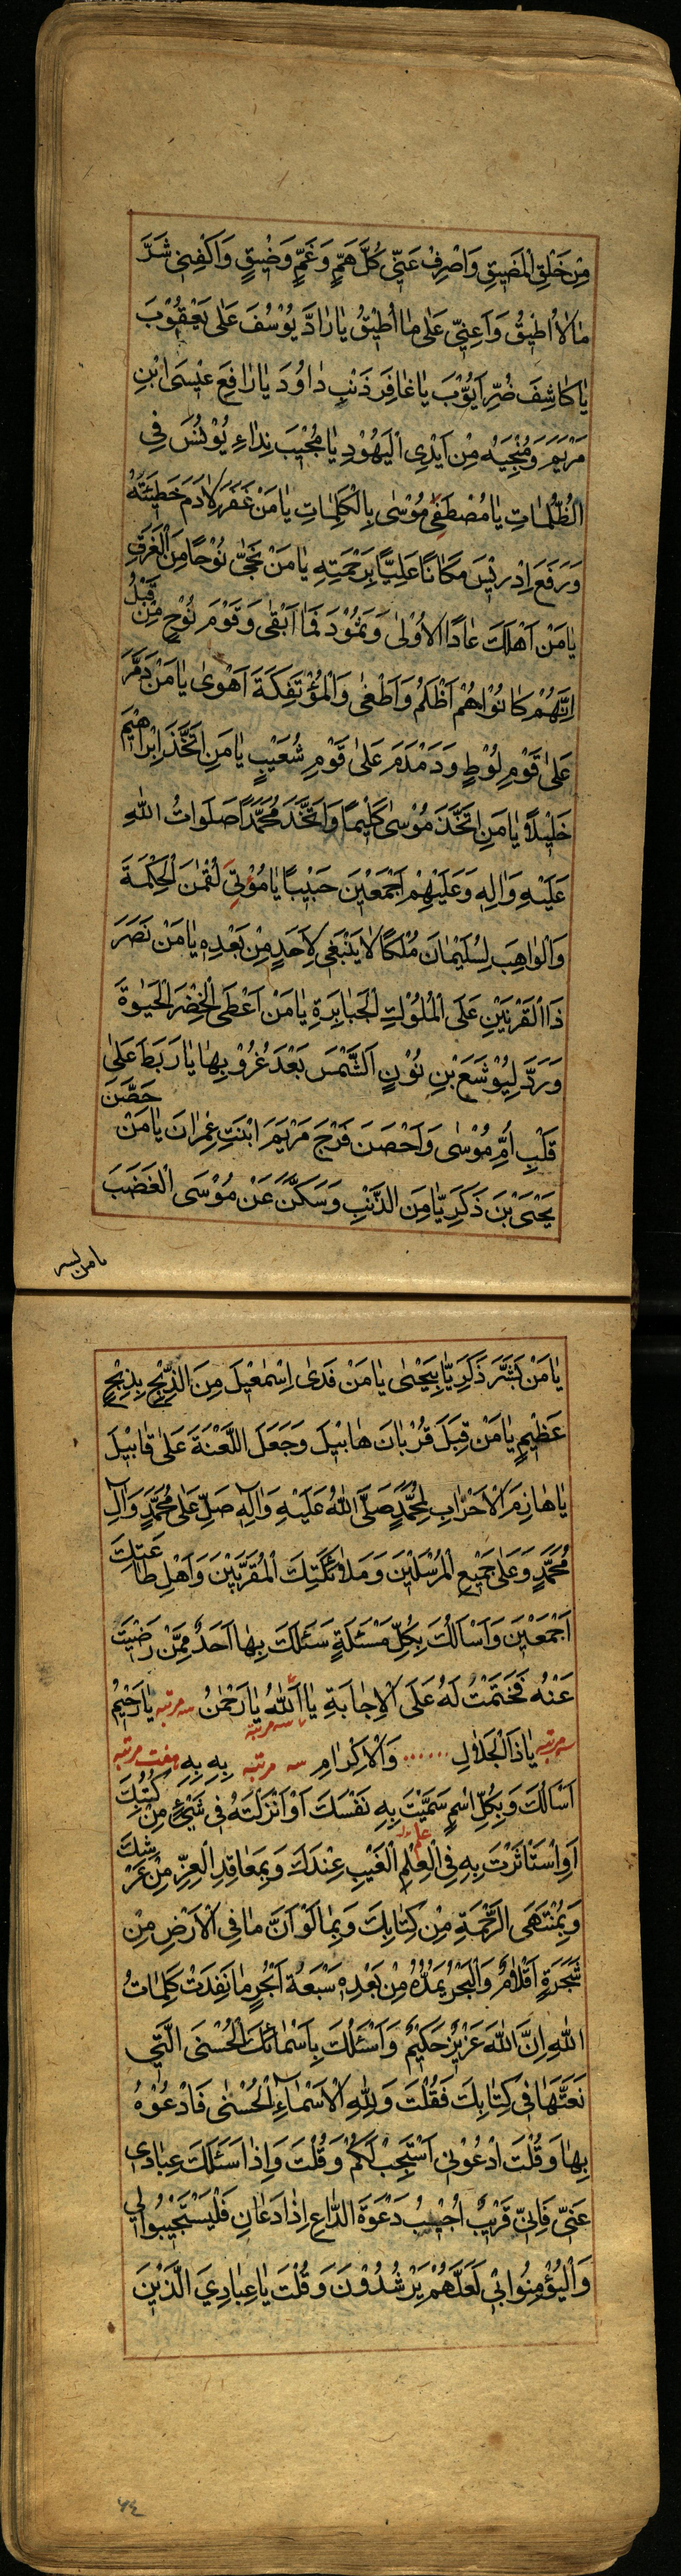 مِنْ خَلْقِ الْمَضِيقِ وَاصْرِفْ عَنّي كُلَّ هَمٍّ وَغَمٍّ وَضِيقٍ وَاكْفِنِي شَرَّ
مٰا لاٰ اُطِيقُ وَاَعِنِّي عَلىٰ مٰا اُطِيْقُ يٰا رٰادَّ يُوْسُفَ عَلىٰ يَعْقُوْبَ
يٰا كٰاشِفَ ضُرِّ اَيُّوْبَ يٰا غٰافِرَ ذَنْبِ دٰاوُدَ يٰا رٰافِعَ عِيْسَى ابْنِ
مَرْيَمَ وَمُنْجِيَهُ مِنْ اَيْدِى الْيَهُوْدِ يٰا مُجْيِبَ نِدٰاءِ يُوْنُسَ فِي
الظُّلُمٰاتِ يٰا مُصْطَفِيَ مُوْسٰى بِالْكَلِمٰاتِ يٰا مَنْ غَفَرَ لاٰدَمَ خَطِيْئَتَهُ
وَرَفَعَ اِدْرِيْسَ مَكٰانًا عَلِيًّا بِرَحْمَتِهِ يٰا مَنْ نَجّٰى نُوْحًا مِنَ الْغَرَقِ
يٰا مَنْ اَهْلَكَ عٰادًا الاُوْلىٰ وَثَمُوْدَ فَمٰا اَبْقٰى وَقَوْمَ نُوْحٍ مِنْ قَبْلُ
اِنَّهُمْ كٰانُوْا هُمْ اَظْلَمُ وَاَطْغٰى وَالْمُؤْتَفِكَةَ اَهْوىٰ يٰا مَنْ دَمَّرَ
عَلىٰ قَوْمِ لُوْطٍ وَدَمْدَمَ عَلىٰ قَوْمِ شُعَيْبٍ يٰا مَنِ اتَّخَذَ اِبْرٰاهِيْمَ
خَلِيْلاً يٰا مَنِ اتَّخَذَ مُوْسىٰ كَلِيْمًا وَاتَّخَذَ مُحَمَّدًا صَلَوٰاتُ اللهِ
عَلَيْهِ وَاٰلِهِ وَعَلَيْهِمْ اَجْمَعْيِنَ حَبْيِبًا يٰا مُؤْتِيَ لُقْمٰنَ الْحِكْمَةَ
وَالْوٰاهِبَ لِسُلَيْمٰانَ مُلْكًا لاٰ يَنْبَغِى لاَِحَدٍ مِنْ بَعْدِهِ يٰا مَنْ نَصَرَ
ذَا الْقَرْنَيْنِ عَلَى الْمُلُوْكِ الْجَبٰابِرَةِ يٰا مَنْ اَعْطَى الْخِضْرَ الْحَيٰوةَ
وَرَدَّ لِيُوْشَعَ بْنِ نُوْنٍ الشَّمْسَ بَعْدَ غُرُوْبِهٰا يٰا رَبَطَ عَلىٰ
قَلْبِ اُمِّ مُوْسٰى وَاَحْصَنَ فَرْجَ مَرْيَمَ ابْنَتِ عِمْرٰانَ يٰا مَنْ حَصَّنَ
يَحْيَى بْنَ زَكَرِيّٰا مِنَ الذَّنْبِ وَسَكَّنَ عَنْ مُوْسَى الْغَضَبَ
يا من بشر
يٰا مَنْ بَشَّرَ زَكَرِيّٰا بِيَحْيٰى يٰا مَنْ فَدىٰ اِسْمٰعْيِلَ مِنَ الذَّبْحِ بِذِبْحٍ
عَظْيِمٍ يٰا مَنْ قَبِلَ قُرْبٰانَ هٰابْيِلَ وَجَعَلَ اللَّعْنَةَ عَلىٰ قٰابْيِلَ
يٰا هٰازِمَ الاَحْزٰابِ لِمُحَمَّدٍ صَلَّى اللهُ عَلَيْهِ وَاٰلِهِ صَلِّ عَلىٰ مُحَمَّدٍ وَاٰلِ
مُحَمَّدٍ وَعَلىٰ جَمْيِعِ الْمُرْسَلْيِنَ وَمَلاٰئِكَتِكَ الْمُقَرَّبْيِنَ وَاَهْلِ طٰاعَتِكَ
اَجْمَعْيِنَ وَاَسْاَلُكَ بِكُلِّ مَسْئَلَةٍ سَئَلَكَ بِهٰا اَحَدٌ مِمَّنْ رَضِيْتَ
عَنْهُ فَحَتَمْتَ لَهُ عَلَى الاِجٰابَةِ يٰا اَللهُ يٰا رَحْمٰنُ سه مرتبه يٰا رَحْيِمُ
سه مرتبه
سه مرتبه يٰا ذَا الْجَلاٰلِ ...... وَالاِكْرٰامِ سه مرتبه بِهِ بِهِ هفت مرتبه
اَسْاَلُكَ وَبِكُلِّ اسْمٍ سَمَّيْتَ بِهِ نَفْسَكَ اَوْ اَنْزَلْتَهُ فِي شَيْءٍ مِنْ كُتُبِكَ
اَوِ اسْتَاْثَرْتَ بِهِ فِي الْعِلْمِ علم الْغَيْبِ عِنْدَكَ وَبِمَعٰاقِدِ الْعِزِّ مِنْ عَرْشِكَ
وَبِمُنْتَهَى الرَّحْمَةِ مِنْ كِتٰابِكَ وَبِمٰا لَوْ اَنَّ مٰا فِي الاَرْضِ مِنْ
شَجَرَةٍ اَقْلاٰمٌ وَالْبَحْرُ يَمُدُّهُ مِنْ بَعْدِهِ سَبْعَةُ اَبْحُرٍ مٰا نَفِدَتْ كَلِمٰاتُ
اللهِ اِنَّ اللهَ عَزْيِزٌ حَكْيِمٌ وَاَسْئَلُكَ بِاَسْمٰائِكَ الْحُسْنَى الَّتْيِ
نَعَتَّهٰا فِي كِتٰابِكَ فَقُلْتَ وَلِلّٰهِ الاَسْمٰاءُ الْحُسْنٰى فَادْعُوْهُ
بِهٰا وَقُلْتَ ادْعُوْنِي اَسْتَجِبْ لَكُمْ وَقُلْتَ وَاِذٰا سَئَلَكَ عِبٰادِي
عَنّي فَاِنّي قَرْيِبٌ اُجْيِبُ دَعْوَةَ الدّٰاعِ اِذٰا دَعٰانِ فَلْيَسْتَجْيِبُوا لِي
وَالْيُؤْمِنُوا بِي لَعَلَّهُمْ يَرْشُدُوْنَ وَقُلْتَ يٰا عِبٰادِيَ الَّذْيِنَ
٧٤